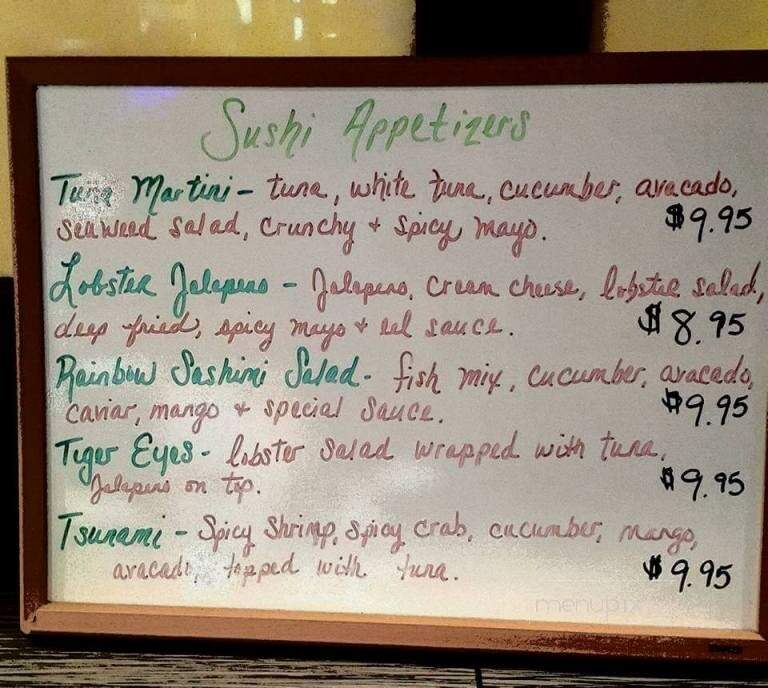 Sushi Appetizers
Tuna Martini - tuna, white tuna, cucumber, avacado,
seaweed salad, crunchy + spicy mayo. $9.95
Lobster Jalapeno - Jalapeno, cream cheese, lobster salad,
deep fried, spicy mayo + eel sauce. $8.95
Rainbow Sashimi Salad - fish mix, cucumber, avacado,
caviar, mango + special sauce. $9.95
Tiger Eyes - lobster salad wrapped with tuna,
Jalapeno on top. $9.95
Tsunami - Spicy Shrimp, Spicy crab, cucumber, mango,
avacado, topped with tuna. $9.95
menupix